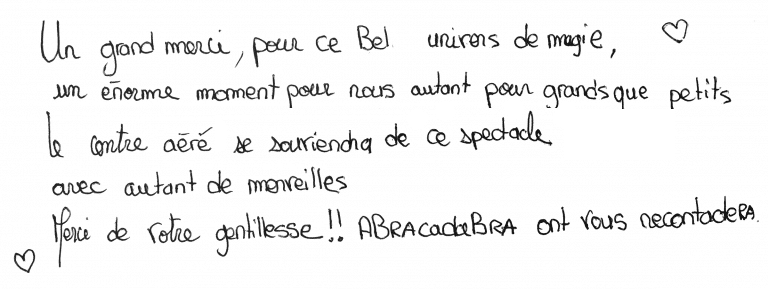 Un grand merci, pour ce Bel univers de magie, ♡
un énorme moment pour nous autant pour grands que petits
le centre aéré se souviendra de ce spectacle
avec autant de merveilles
♡ Merci de votre gentillesse!! ABRAcadaBRA ont vous recontadeRA.